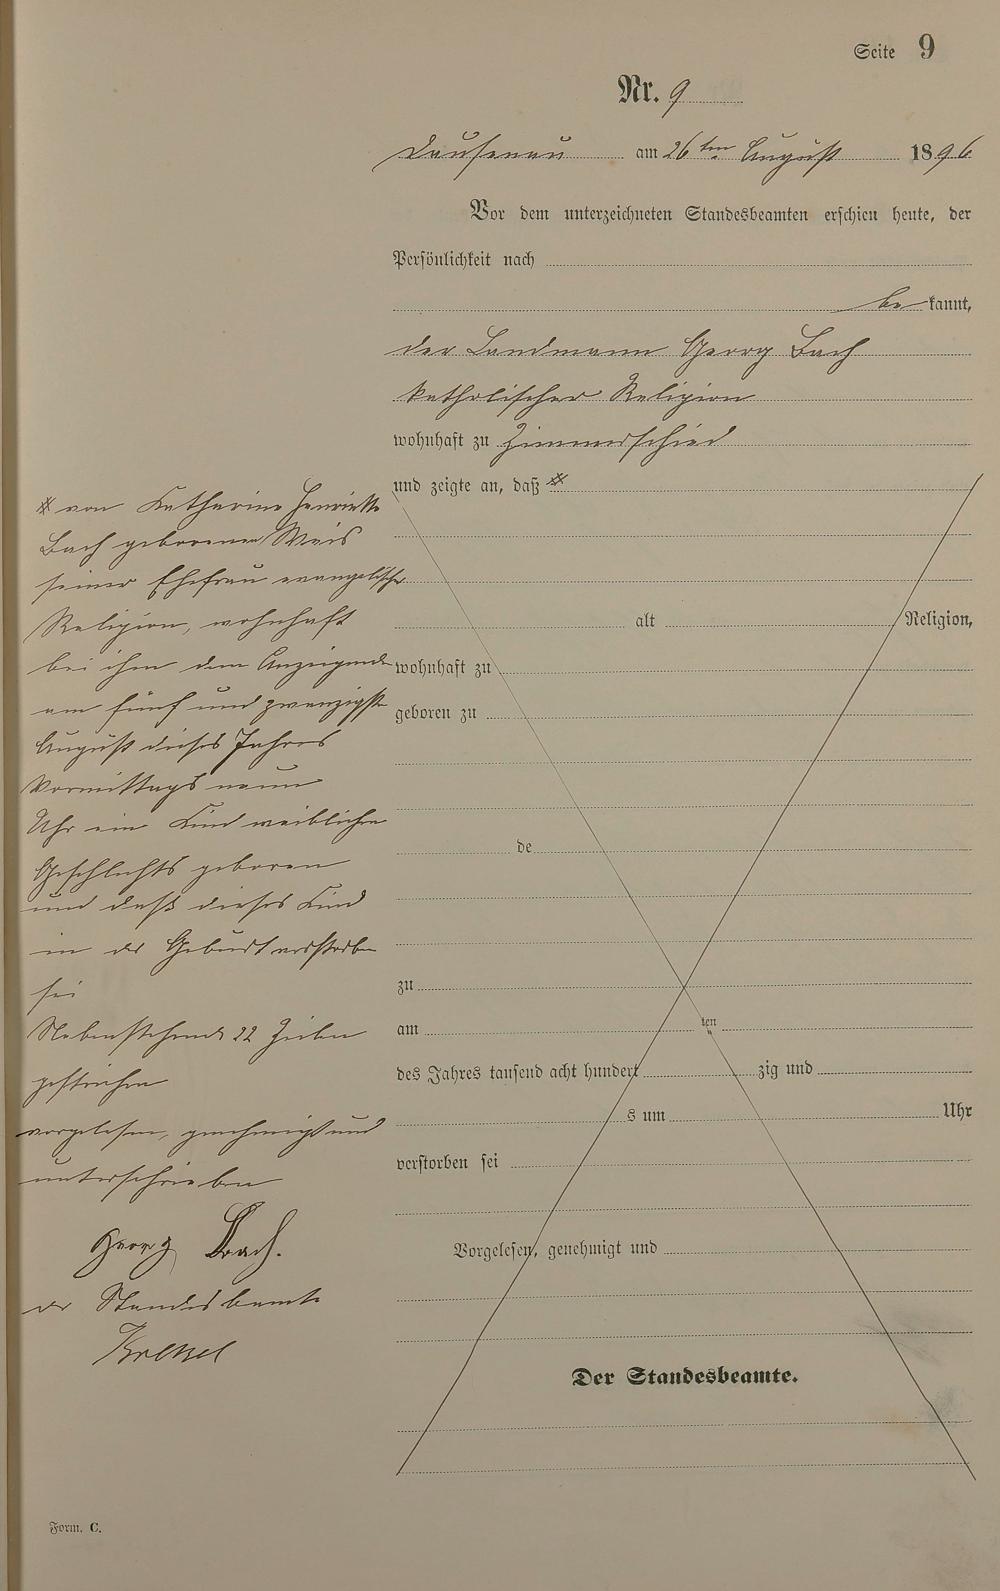 Seite 9
Nr. 9
Dausenau am 26ten August 1896
Vor dem unterzeichneten Standesbeamten erschien heute, der
Persönlichkeit nach
be kannt,
der Landmann Georg Bach
katholischer Religion
wohnhaft zu Zimmerschied
und zeigte an, daß #
# von Katharine Henriette
Bach geborenen Weis
seiner Ehefrau evangelischer
Religion, wohnhaft
bei ihm dem Anzeigende
am fünf und zwanzigste
August dieses Jahres
Vormittags neun
Uhr ein Kind weiblichen
Geschlechts geboren
und daß dieses Kind
in der Geburt verstorben
sei
Nebenstehende 22 Zeilen
gestrichen
vorgelesen, genehmigt und
unterschrieben
Georg Bach.
der Standesbeamte
alt Religion,
wohnhaft zu
geboren zu
de
zu
am ten
des Jahres tausend acht hundert zig und
s um Uhr
verstorben sei
Vorgelesen, genehmigt und
Der Standesbeamte.
Form. C.